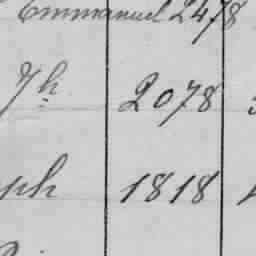 Emmanuel 2478
Jh 2078
ph 1818